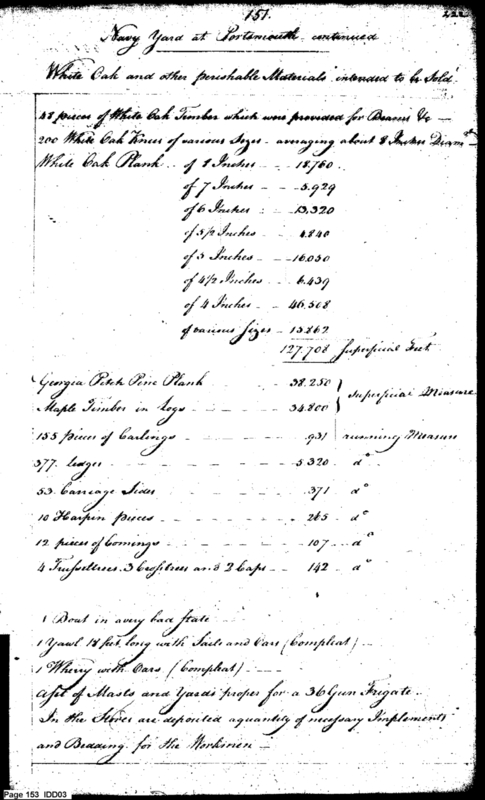 151.
222
Navy Yard at Portsmouth continued
White Oak and other perishable Materials intended to be Sold
48 pieces of White Oak Timber which were provided for Beams &c —
200 White Oak Knees of various Sizes - averaging about 8 Inches Diamr
White Oak Plank of 8 Inches - - 18,760.
of 7 Inches - - 5,929
of 6 Inches : - 13,320
of 5 1/2 Inches - - 4.840
of 5 Inches - - 16,050
of 4 1/2 Inches - - 6.439
of 4 Inches - - 46,508
of various Sizes - 15.862
127,708 Superficial Feet
Georgia Pitch Pine Plank - - 38.250 } Superficial Measure
Maple Timber in Logs - - - - 34.800
155 pieces of Carlings - - - - .931 running Measure
377. ledges - - - - - 5.320 do
53. Carriage Sides - - - - .371 do
10 Harpin pieces - - - - - 265 do
12 pieces of Comings - - - - 107 do
4 Trusseltrees. 3 Crosstrees and 2 Caps - - 142 do
1 Boat in a very bad state - -
1 Yawl 18 feet long with Sails and Oars (Compleat) —
1 Wherry with Oars. (Compleat) - - - -
A set of Masts and Yards proper for a 36 Gun Frigate. -
In the Stores are deposited a quantity of necessary Implements
and Bedding for the Workmen —
Page 153 IDD03